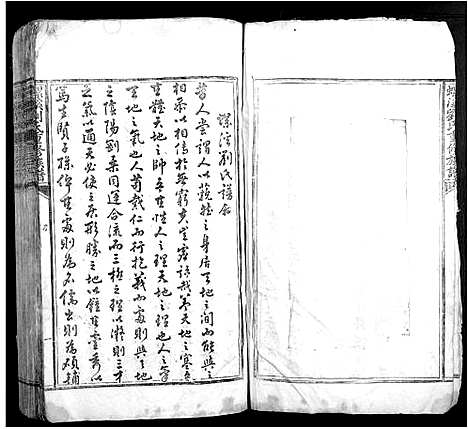 螺溪劉氏譜叙
昔人嘗謂人以藐然之身居天地之間而能與之
相參以相傳於無窮亦豈虛語哉蓋天地之塞吾
其體天地之帥吾其性人之理天地之理也人之氣
天地之氣也人苟戴仁而行抱義而處則與天地
之陰陽剛柔同運合流而三極之理以將則三才
之氣以通天必使之居形勝之地以鍾其靈秀以
篤生賢子孫俾其處則為名儒出則為碩輔
螺溪劉氏重修族譜